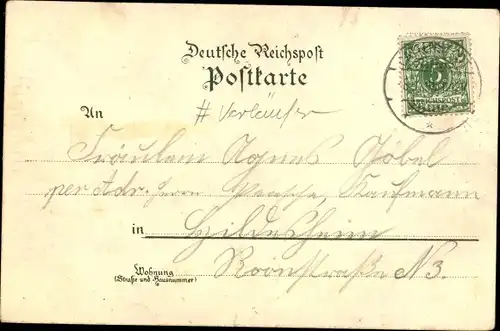 Deutsche Reichspost
Postkarte
# Vorläufer
An
Fräulein Agnes Göbel
per Adr. Herrn Kaufmann
in Hildesheim
Wohnung
(Straße und Hausnummer)
Roonstraße N 3.
5